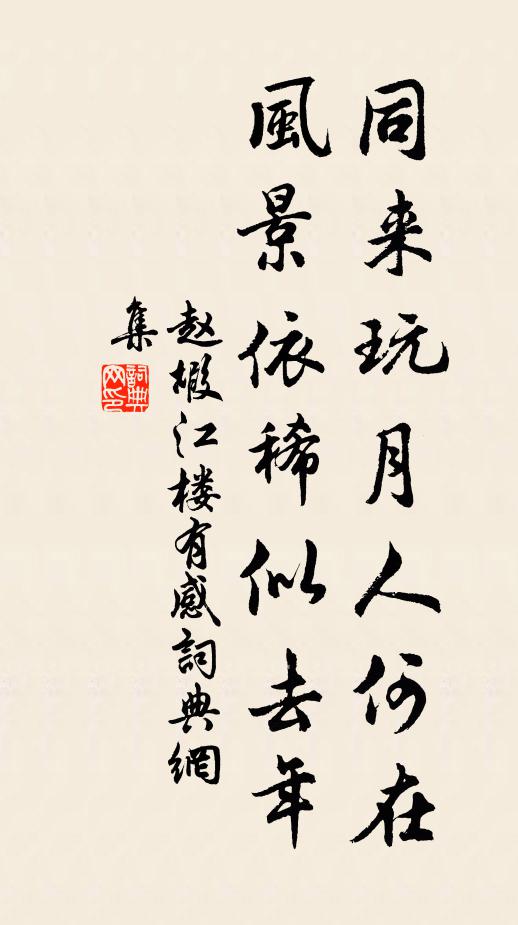 同来玩月人何在
風景依稀似去年
赵嘏江楼有感詞典網
集
詞典
网印